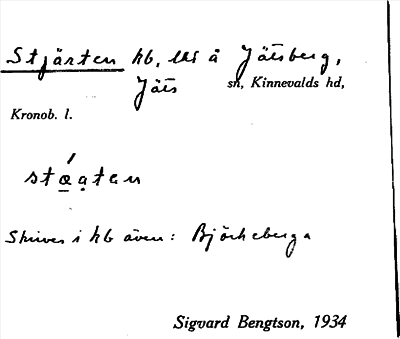 Stjärten hb, lht å Jätsberg,
Jäts sn, Kinnevalds hd,
Kronob. l.
stǽ̱ạtən
Skrives i hb även: Björkeberga
Sigvard Bengtson, 1934